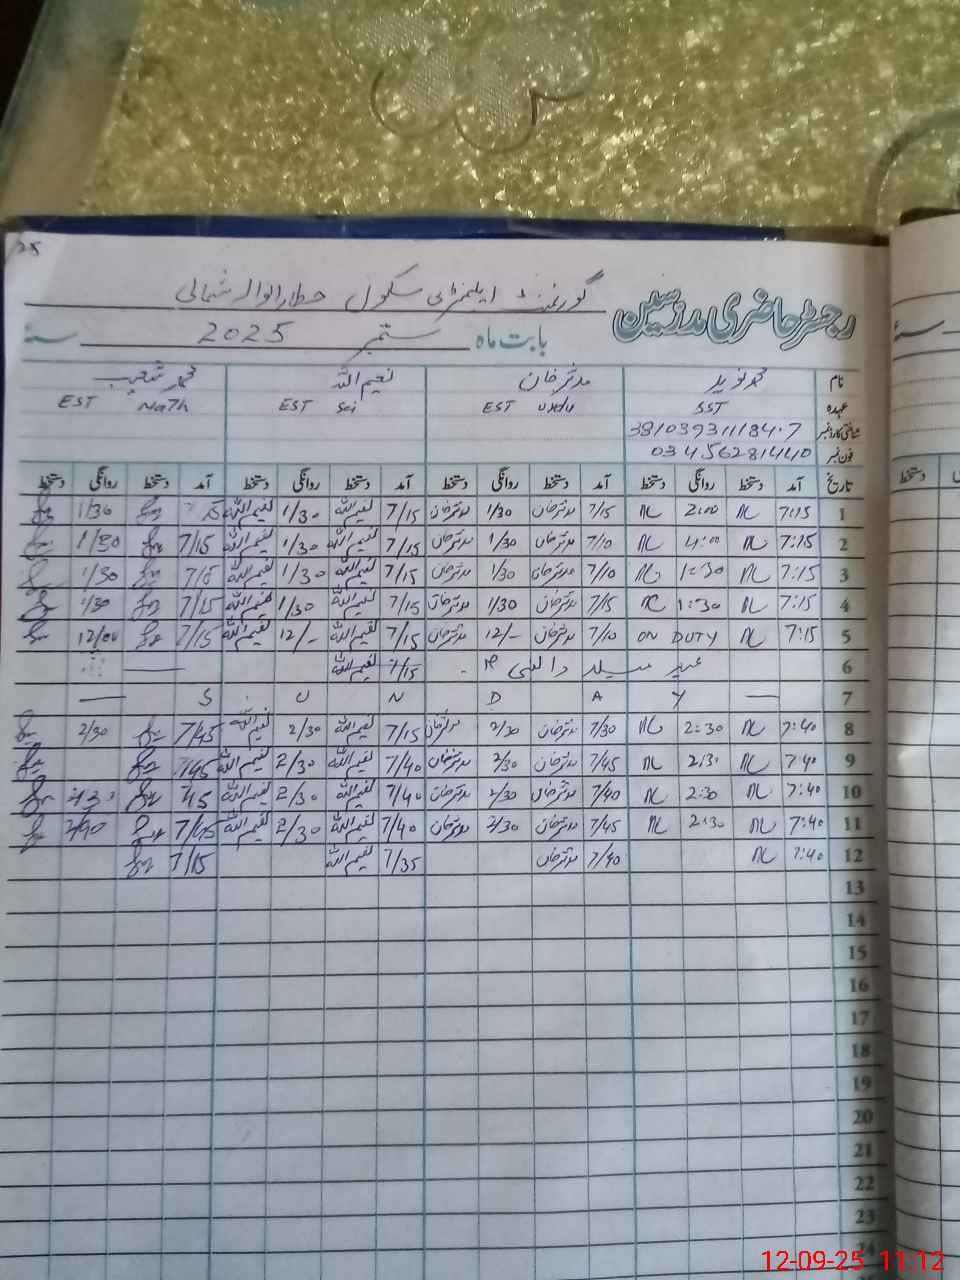 25
گورنمنٹ ایلیمنٹری سکول شمالی
رجسٹر حاضری مدرسین
بابت ماہ ستمبر 2025 سنہ
نام محمد نوید مدثر خان نعیم اللہ محمد شعیب
عہدہ SST EST Urdu EST Sci EST Math
شناختی کارڈ نمبر
فون نمبر 03456281440
تاریخ آمد دستخط روانگی دستخط آمد دستخط روانگی دستخط آمد دستخط روانگی دستخط آمد دستخط روانگی دستخط
1 7:15 2:00 7/15 مدثر خان 1/30 مدثر خان 7/15 نعیم اللہ 1/30 نعیم اللہ 1/30
2 7:15 4:00 7/10 مدثر خان 1/30 مدثر خان 7/15 نعیم اللہ 1/30 نعیم اللہ 7/15 1/30
3 7:15 1:30 7/10 مدثر خان 1/30 مدثر خان 7/15 نعیم اللہ 1/30 نعیم اللہ 7/15 1/30
4 7:15 1:30 7/15 مدثر خان 1/30 مدثر خان 7/15 نعیم اللہ 1/30 نعیم اللہ 7/15 1/30
5 7:15 ON DUTY 7/10 مدثر خان 12/- مدثر خان 7/15 نعیم اللہ 12/- نعیم اللہ 7/15 12/00
6 عید میلاد النبی 7/15 نعیم اللہ
7 — Y A D N U S —
8 7:40 2:30 7/30 مدثر خان 2/30 مدثر خان 7/15 نعیم اللہ 2/30 نعیم اللہ 7/45 2/30
9 7:40 2:30 7/45 مدثر خان 2/30 مدثر خان 7/40 نعیم اللہ 2/30 نعیم اللہ 7/45
10 7:40 2:30 7/40 مدثر خان 2/30 مدثر خان 7/40 نعیم اللہ 2/30 نعیم اللہ 7/45
11 7:40 2:30 7/45 مدثر خان 2/30 مدثر خان 7/40 نعیم اللہ 2/30 نعیم اللہ 7/45
12 7:40 7/40 مدثر خان 7/35 نعیم اللہ 7/15
13
14
15
16
17
18
19
20
21
22
23
24
12-09-25 11:12